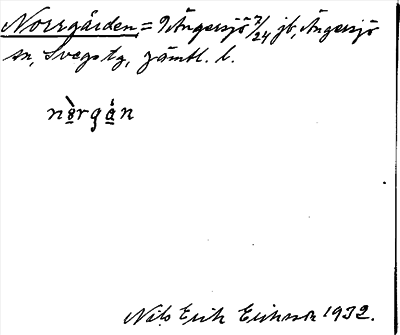 Norrgården = Ängersjö 7/24 jb, Ängersjö
sn, Svegs tg, Jämtl. l.
nòrgǻn
Nils Erik Eriksson 1932.